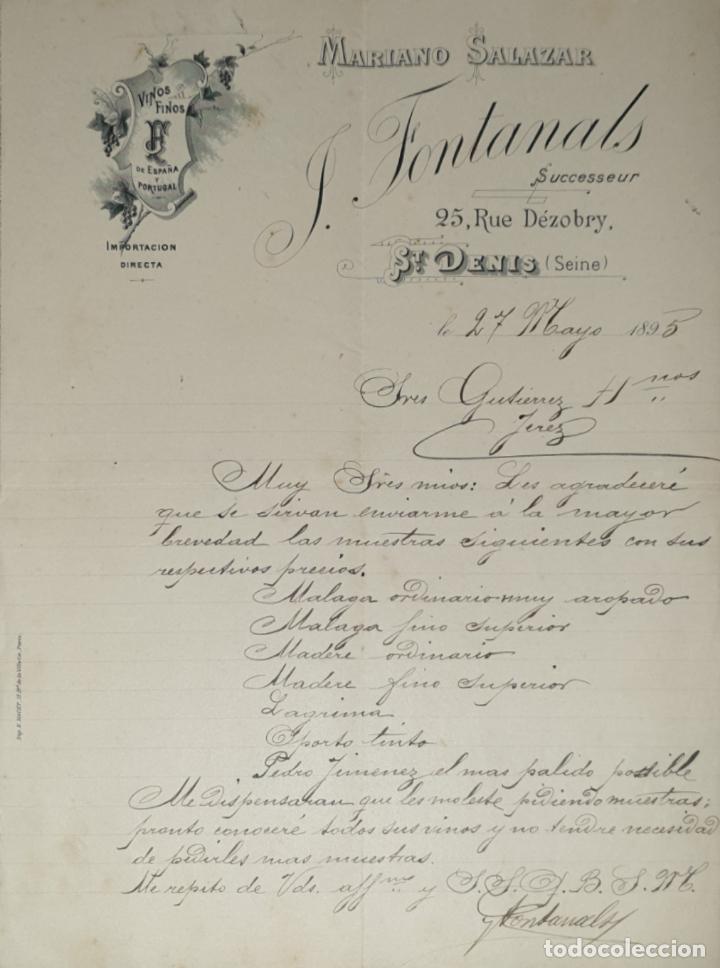 MARIANO SALAZAR
VINOS
FINOS
DE ESPAÑA
Y
PORTUGAL
IMPORTACION
DIRECTA
J. Fontanals
Successeur
25, Rue Dézobry,
ST DENIS (Seine)
le 27 Mayo 1895
Sres Gutierrez Hnos
Jerez
Muy Sres mios: Les agradeceré
que se sirvan enviarme á la mayor
brevedad las muestras siguientes con sus
respectivos precios.
Malaga ordinario muy aropado
Malaga fino superior
Madere ordinario
Madere fino superior
Lagrima
Oporto tinto
Pedro Jimenez el mas palido possible
Me dispensaran que les moleste pidiendo muestras;
pronto conoceré todos sus vinos y no tendre necesidad
de pedirles mas muestras.
Me repito de Vds. affmo y S. S. Q. B. S. M.
J Fontanals
todocoleccion